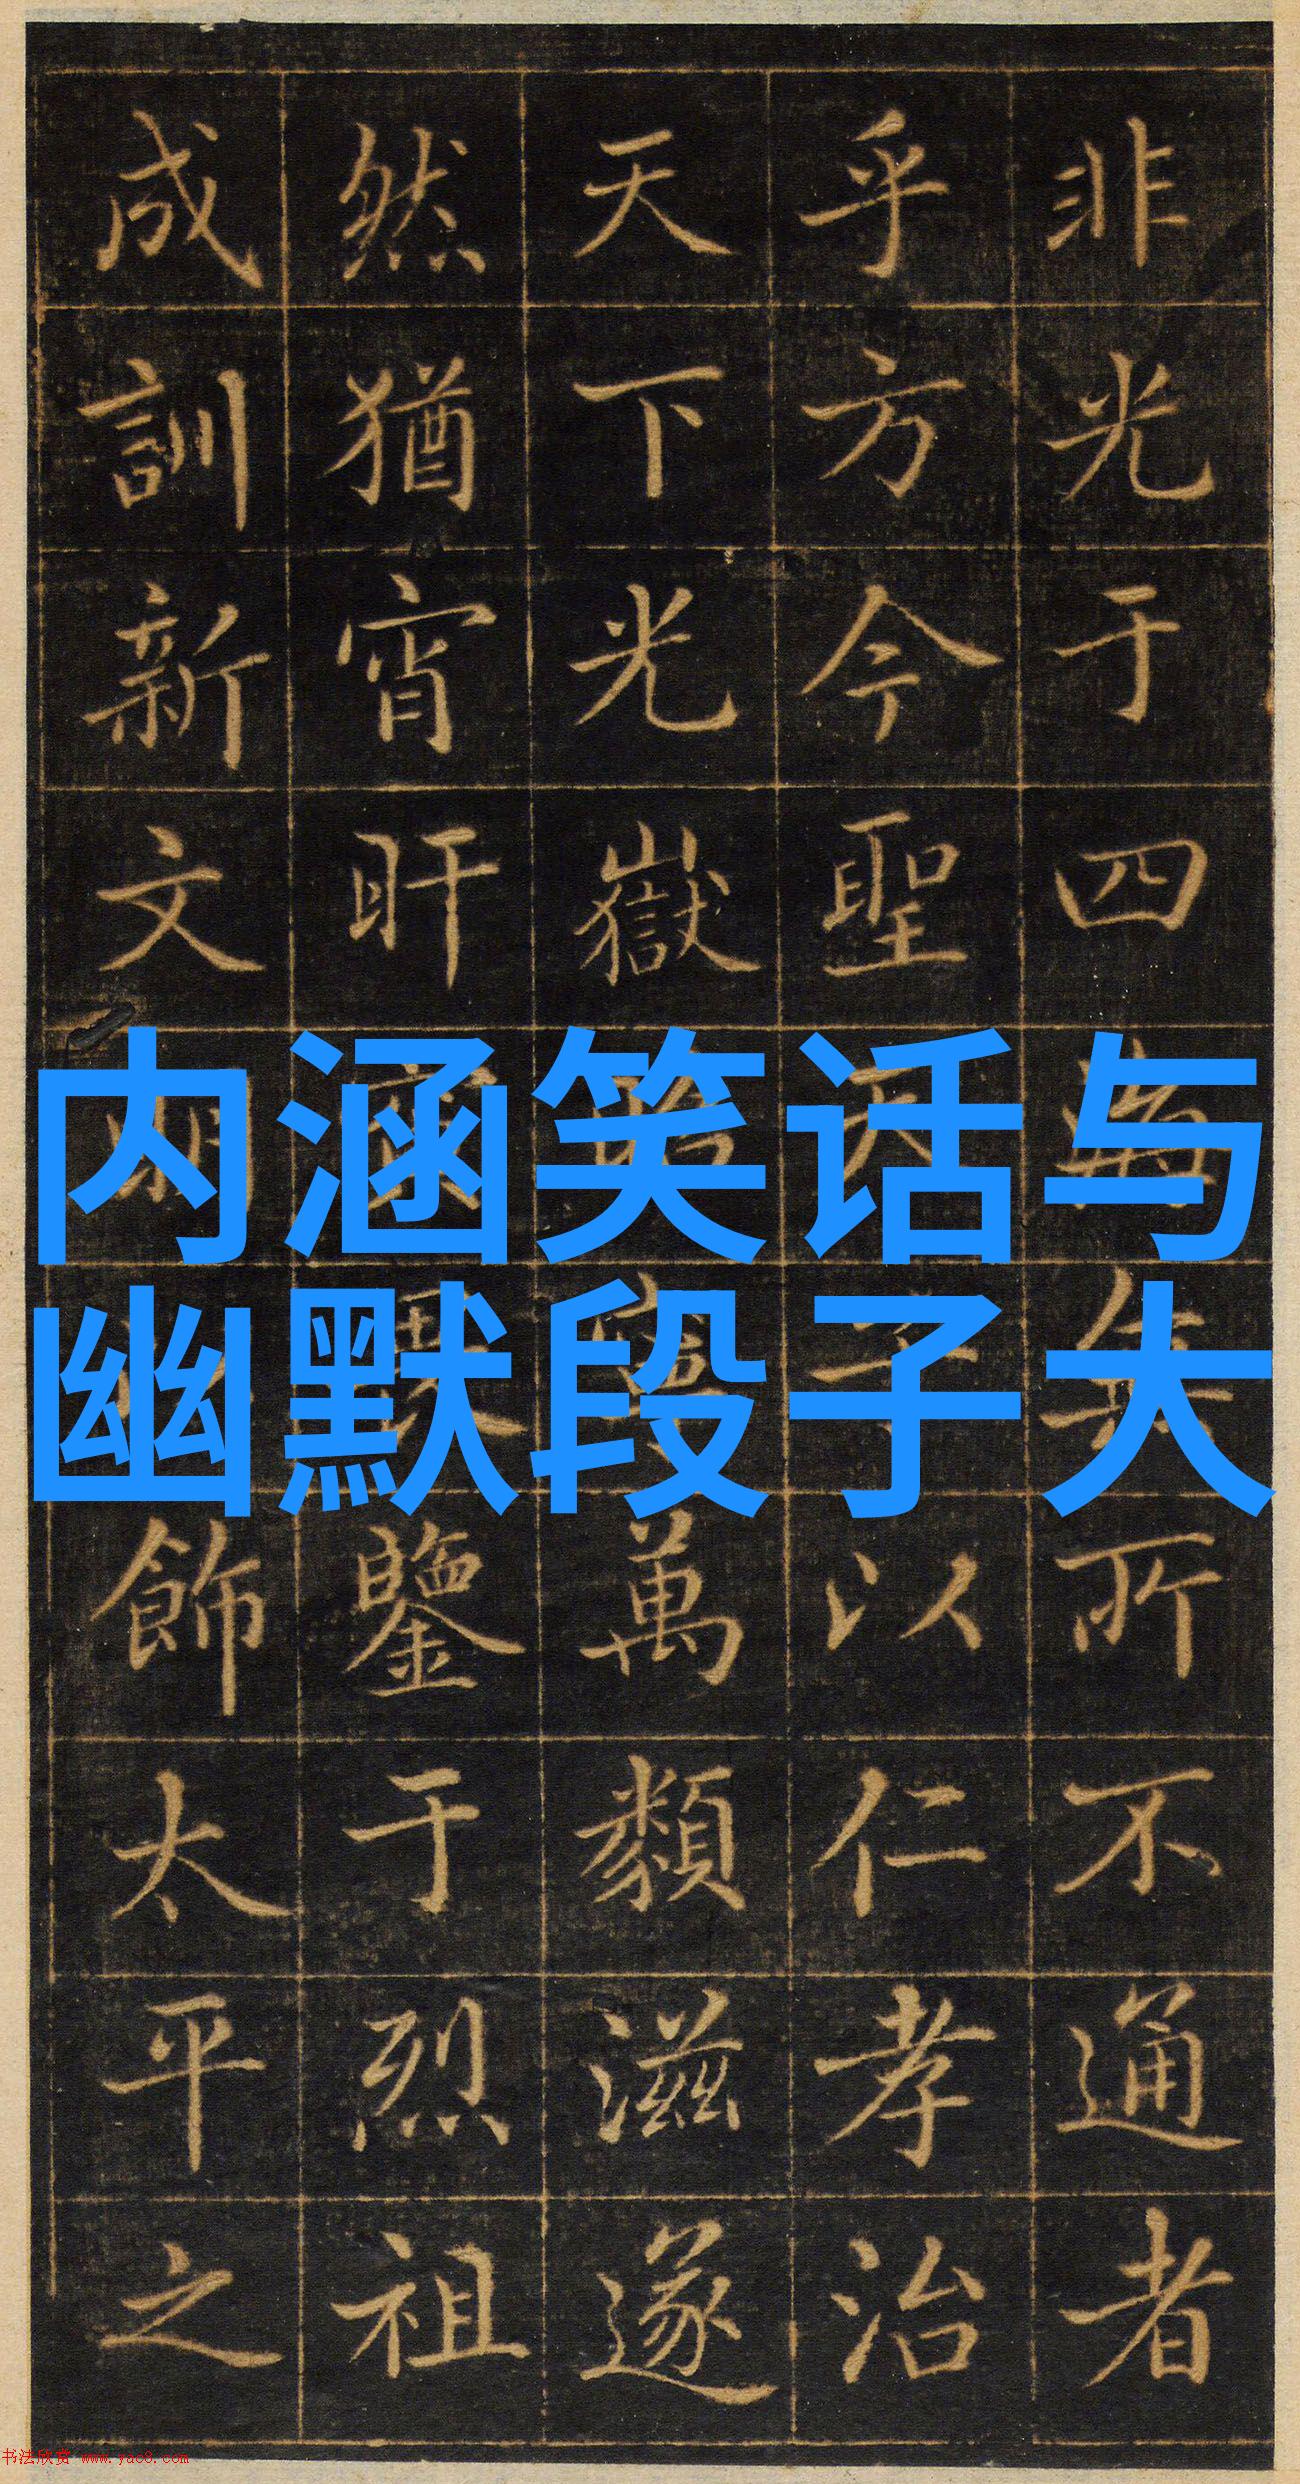 非光于四海無所不通者
乎方今聖天子以仁孝治
天下光嶽萬類滋遂
然猶宵旰鑒于烈祖
成訓新文飾太平之
内涵笑话与
幽默段子大
书法欣赏 www.yac8.com